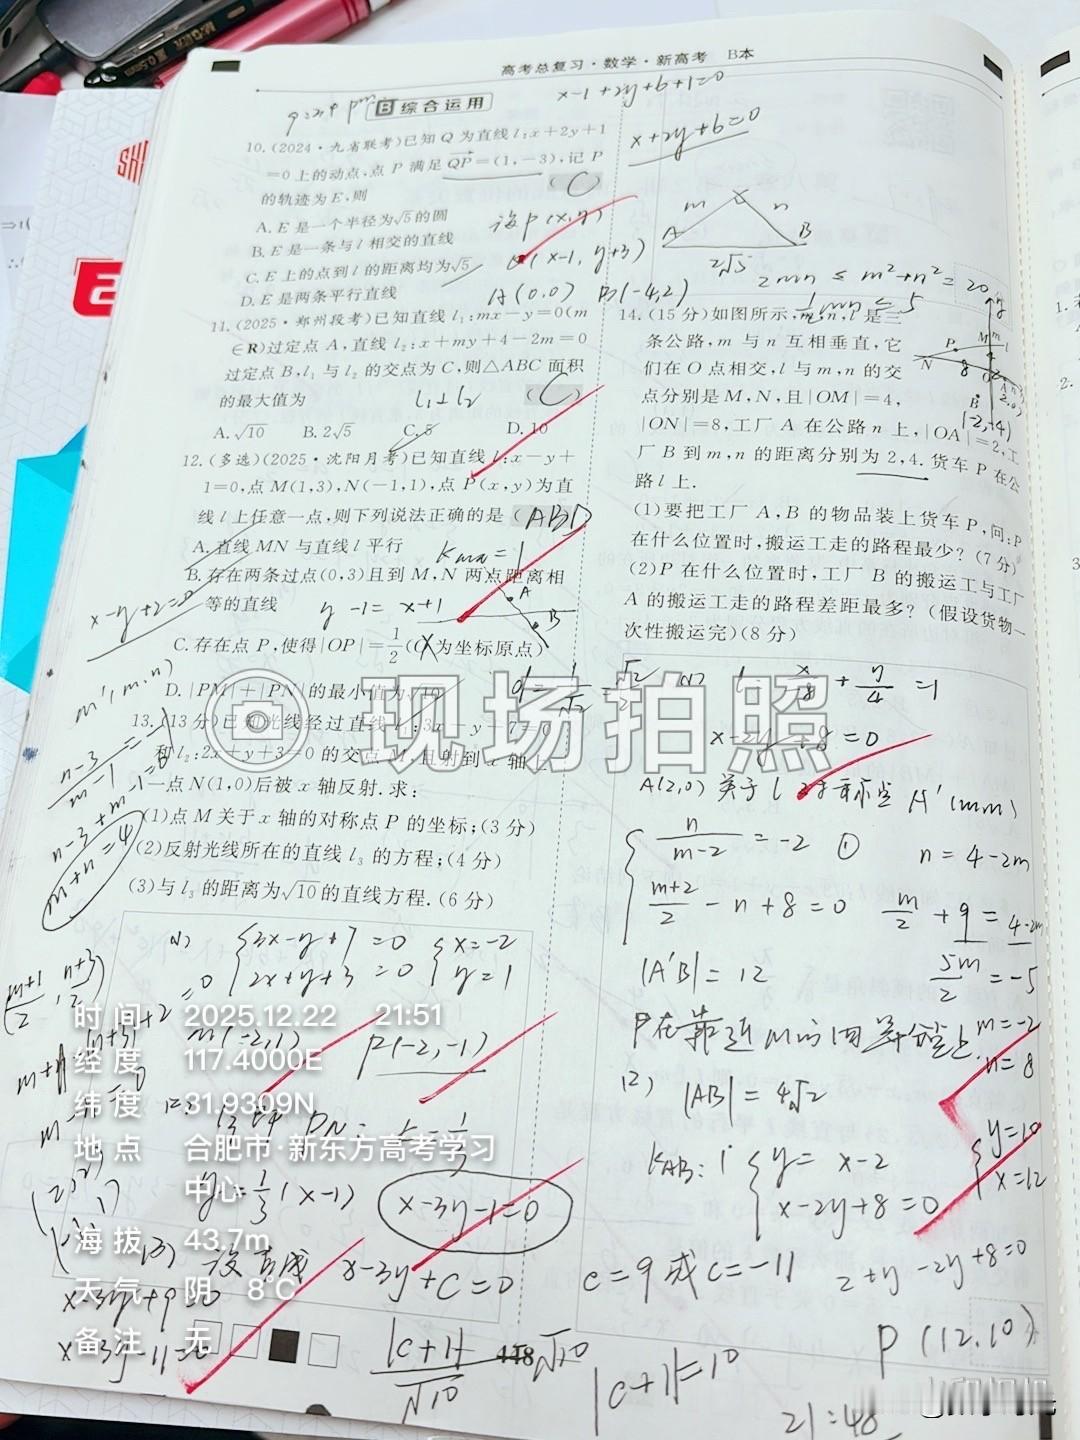 高考总复习·数学·新高考 B本
B 综合运用
x-1+2y+6+1=0
x+2y+6=0
10.(2024·九省联考)已知 Q 为直线 l:x+2y+1
=0 上的动点,点 P 满足QP=(1,-3),记 P
的轨迹为 E,则 (C)
A. E 是一个半径为√5的圆
B. E 是一条与 l 相交的直线
C. E 上的点到 l 的距离均为√5
D. E 是两条平行直线
设P(x,y)
Q(x-1,y+3)
A(0,0) B(-4,2)
11.(2025·郑州段考)已知直线 l₁:mx-y=0(m
∈R)过定点 A,直线 l₂:x+my+4-2m=0
过定点 B,l₁ 与 l₂ 的交点为 C,则△ABC 面积
的最大值为 l₁⊥l₂ (C)
A. √10 B. 2√5 C. 5 D. 10
12.(多选)(2025·沈阳月考)已知直线 l:x-y+
1=0,点 M(1,3),N(-1,1),点 P(x,y)为直
线 l 上任意一点,则下列说法正确的是 (ABD)
A. 直线 MN 与直线 l 平行
B. 存在两条过点(0,3)且到 M,N 两点距离相
等的直线
y-1=x+1
x-y+2=0
C. 存在点 P,使得|OP|=1/2(O为坐标原点)
D. |PM|+|PN|的最小值为
13.(13分)已知光线经过直线 l₁:3x-y+7=0
和 l₂:2x+y+3=0 的交点 M,且射到 x 轴上
一点 N(1,0)后被 x 轴反射.求:
(1)点 M 关于 x 轴的对称点 P 的坐标;(3分)
(2)反射光线所在的直线 l₃ 的方程;(4分)
(3)与 l₃ 的距离为√10的直线方程.(6分)
n-3+m-1=0
m+n=4
(1) {3x-y+7=0 {x=-2
2x+y+3=0 y=1
M(-2,1) P(-2,-1)
y=1/3(x-1) x-3y-1=0
(3) 设直线 x-3y+C=0
x-3y+9=0
x-3y-11=0
|C+1|/√10 √10
|C+1|=10
C=9或C=-11
m n
A B
2√5
2mn≤m²+n²=20
1/2mn≤5
14.(15分)如图所示,m,n,l 是三
条公路,m 与 n 互相垂直,它
们在 O 点相交,l 与 m,n 的交
点分别是 M,N,且|OM|=4,
|ON|=8,工厂 A 在公路 n 上,|OA|=2,工
厂 B 到 m,n 的距离分别为 2,4.货车 P 在公
路 l 上.
(1)要把工厂 A,B 的物品装上货车 P,问:P
在什么位置时,搬运工走的路程最少?(7分)
(2)P 在什么位置时,工厂 B 的搬运工与工厂
A 的搬运工走的路程差距最多?(假设货物一
次性搬运完)(8分)
x-2y+8=0
A(2,0)关于l对称点A'(m,n)
{n/(m-2)=-2 ① n=4-2m
(m+2)/2-n+8=0 m/2+9=4-2m
|A'B|=12 5m/2=-5
m=-2
n=8
(2) |AB|=4√2
KAB:1 {y=x-2
x-2y+8=0
{y=10
x=12
2+y-2y+8=0
P(12,10)
21:48
448
现场拍照
时间 2025.12.22 21:51
经度 117.4000E
纬度 31.9309N
地点 合肥市·新东方高考学习
中心
海拔 43.7m
天气 阴 8℃
备注 无